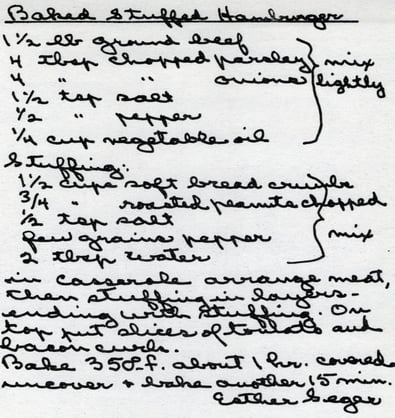 Baked Stuffed Hamburger
1½ lb ground beef
4 tbsp chopped parsley } mix
4 " " onions } lightly
1½ tsp salt
½ " pepper
¼ cup vegetable oil
Stuffing:
1½ cups soft bread crumbs
¾ " roasted peanuts chopped
½ tsp salt
few grains pepper } mix
2 tbsp water
in casserole arrange meat,
then stuffing in layers -
ending with stuffing. On
top put slices of tomato and
bacon curls.
Bake 350°f. about 1 hr. covered
uncover + bake another 15 min.
Esther Geger